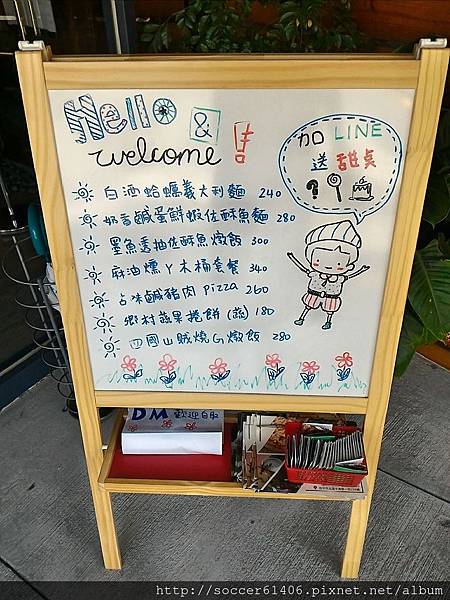 Hello
&
welcome !
加 LINE
送 甜桌
?
白酒蛤蠣義大利麵 240
奶香鹹蛋鮮蝦佐酥魚麵 280
墨魚透抽佐酥魚燉飯 300
麻油燻丫木桶套餐 340
占味鹹豬肉 pizza 260
鄉村蔬果捲餅(蔬) 180
四國山賊燒G燉飯 280
DM 歡迎自取
http://soccer61406.pixnet.net/album